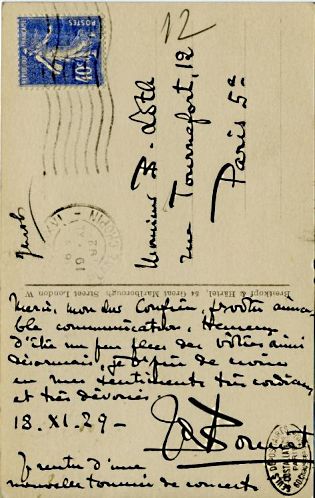 12
RÉPUBLIQUE FRANÇAISE
40c
Monsieur B - Loth
rue Tournefort, 12
Paris 5e
19
Breitkopf & Härtel, 54 Great Marlborough Street London W
Merci, mon cher Confrère, pr votre aima-
ble communication. Heureux
d'être un peu plus des vôtres ainsi
désormais, je vs prie de croire
en mes sentiments très cordiaux
et très dévoués.
18. XI. 29 -
Je rentre d'une
nouvelle tournée de concerts